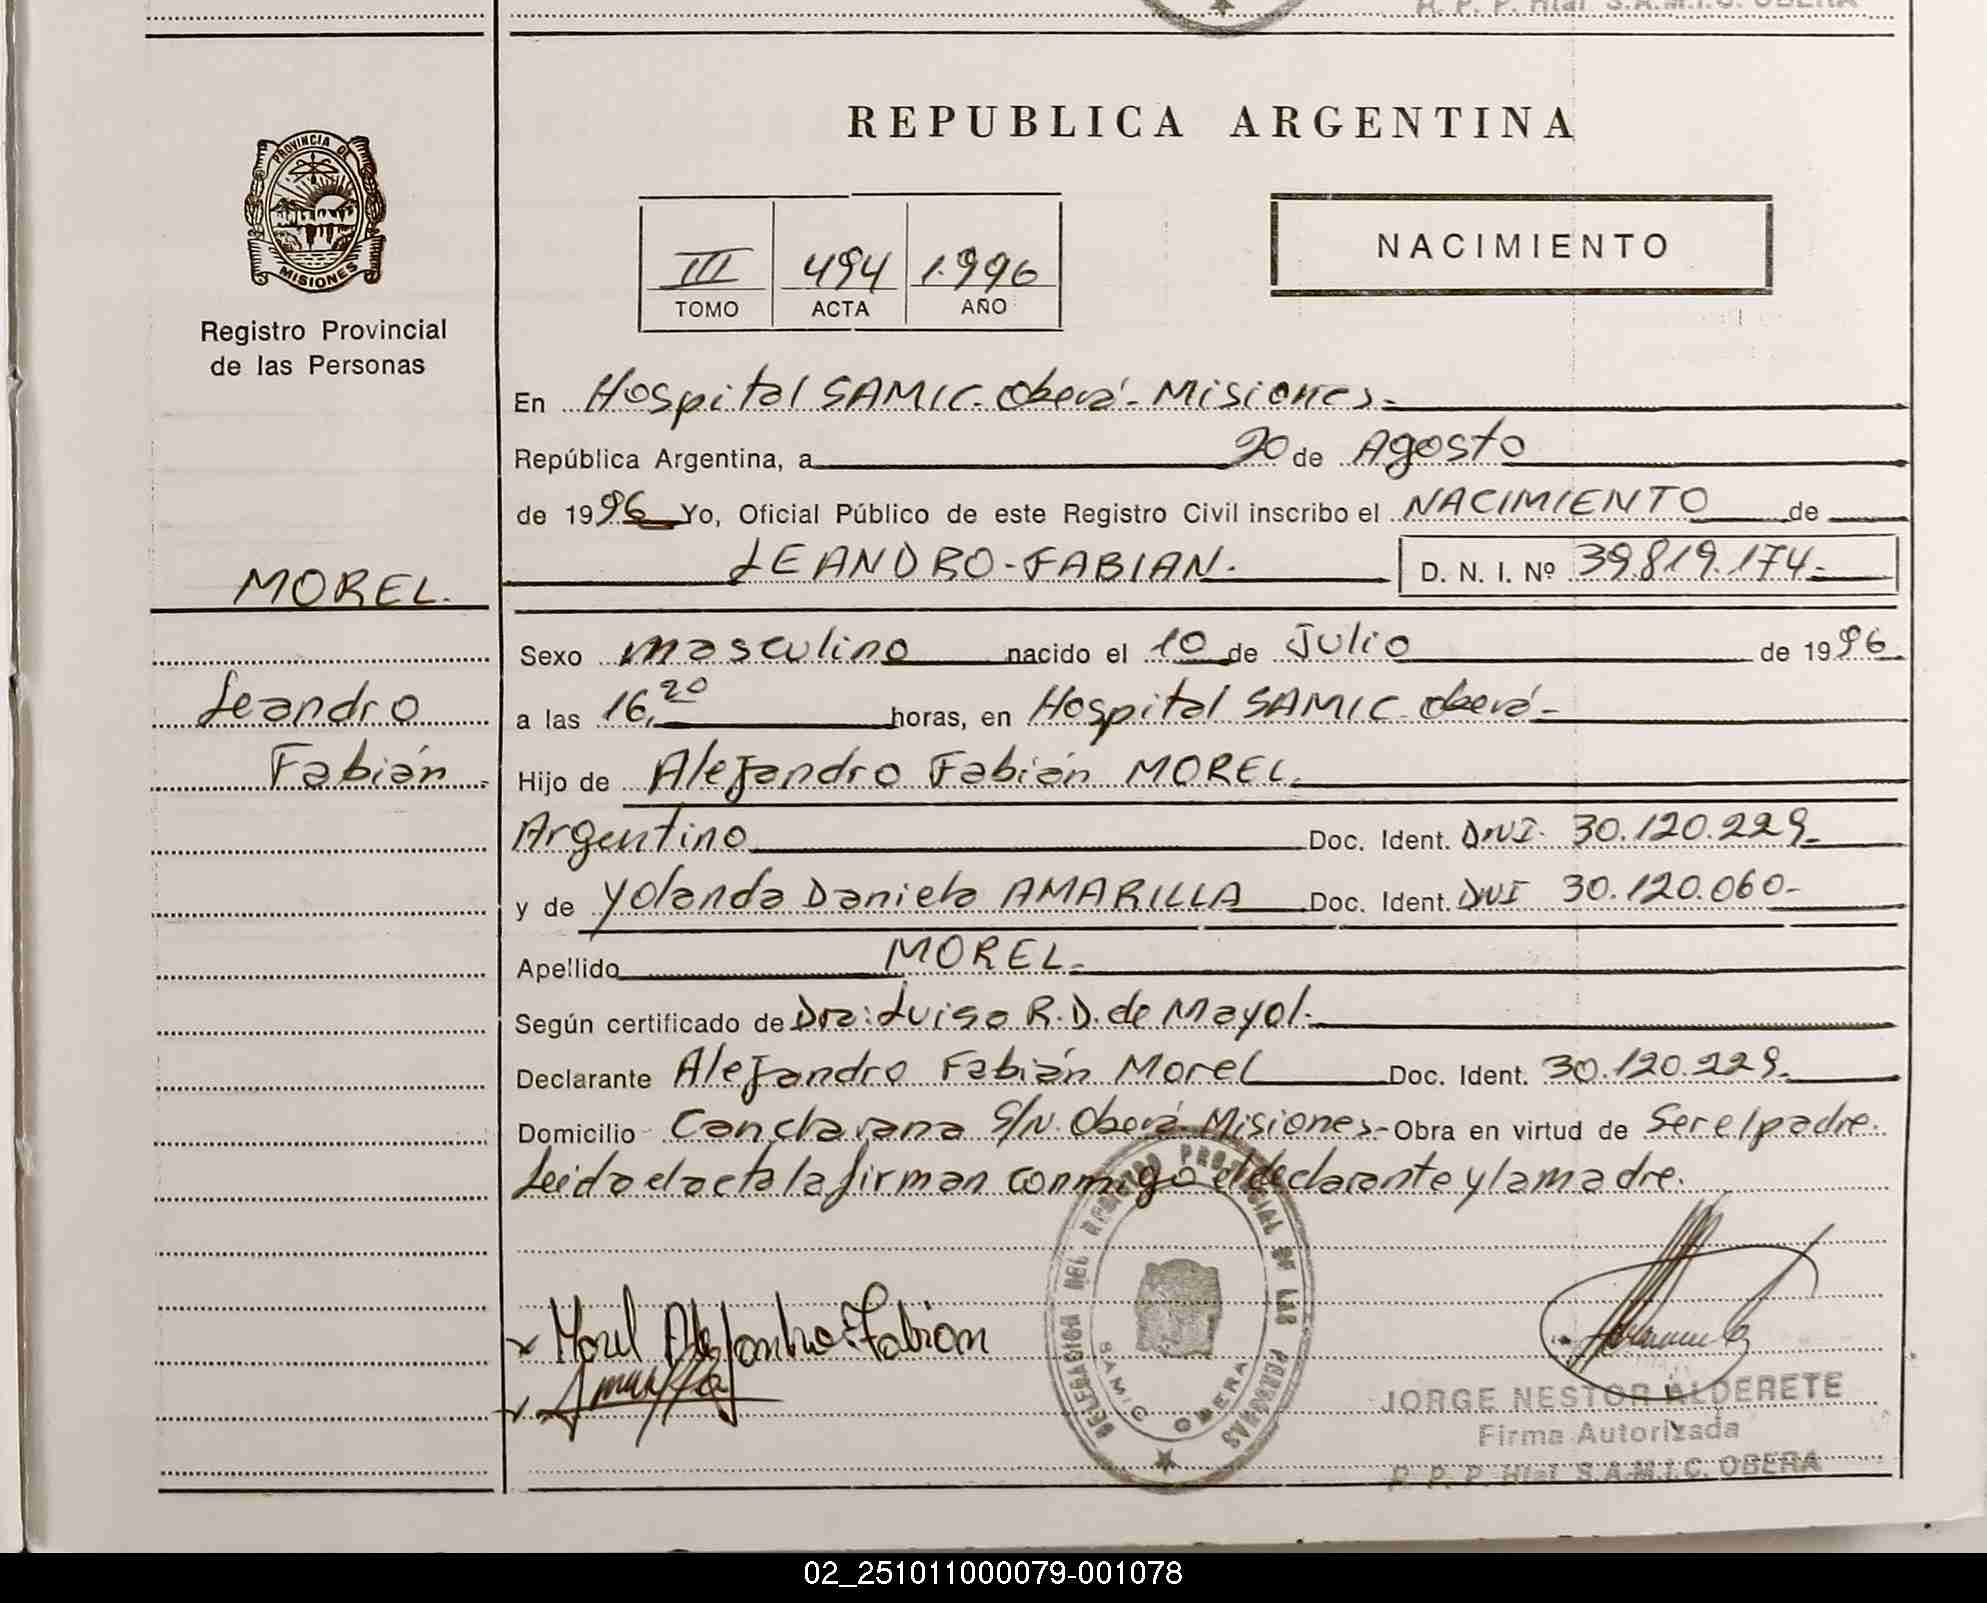 R. P. P. Htal S.A.M.I.C. OBERA
PROVINCIA DE
MISIONES
Registro Provincial
de las Personas
REPUBLICA ARGENTINA
III 494 1.996
TOMO ACTA AÑO
NACIMIENTO
En Hospital SAMIC. Oberá - Misiones.-
República Argentina, a 20 de Agosto
de 1996 Yo, Oficial Público de este Registro Civil inscribo el NACIMIENTO de
LEANDRO-FABIAN. D. N. I. Nº 39.819.174-
MOREL.
Leandro
Fabián
Sexo masculino nacido el 10 de Julio de 1996
a las 16,20 horas, en Hospital SAMIC Oberá-
Hijo de Alejandro Fabián MOREL.
Argentino Doc. Ident. DNI. 30.120.229-
y de Yolanda Daniela AMARILLA Doc. Ident. DNI 30.120.060-
Apellido MOREL.-
Según certificado de Dra: Luisa R.D. de Mayol.
Declarante Alejandro Fabián Morel Doc. Ident. 30.120.229-
Domicilio S/N. Oberá Misiones- Obra en virtud de Ser el padre.
Leida el acta la firman conmigo el declarante y la madre.
Morel Alejandro Fabian
DELEGACION DEL REGISTRO PROVINCIAL DE LAS PERSONAS
SAMIC OBERA
JORGE NESTOR ALDERETE
Firma Autorizada
R. P. P. Htal S.A.M.I.C. OBERA
02_251011000079-001078